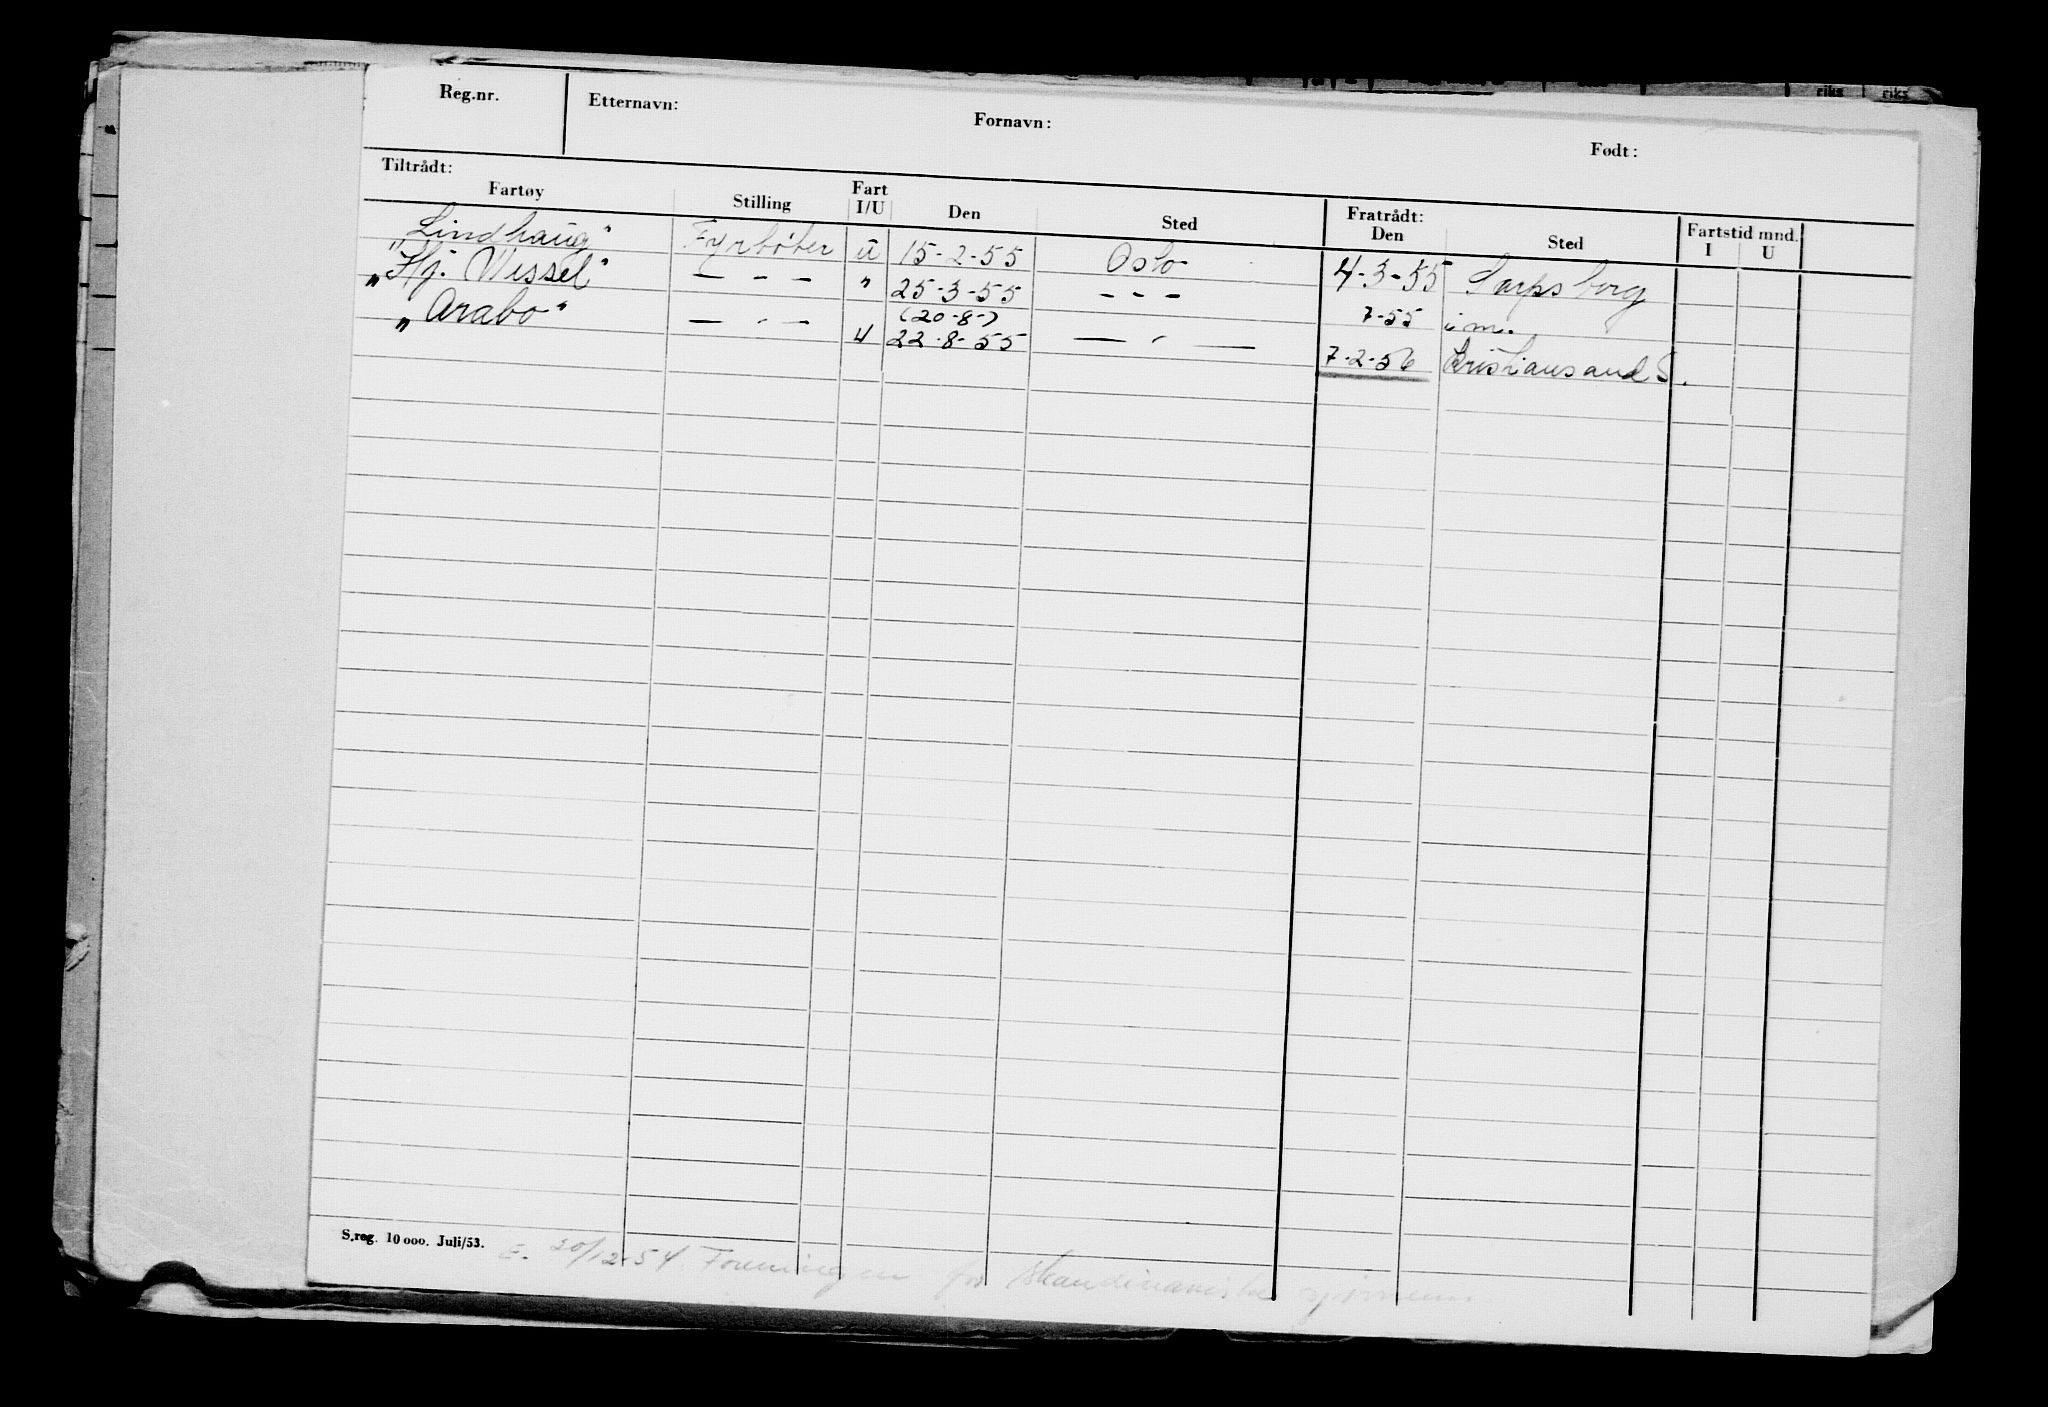 riks riks
Reg.nr. Etternavn: Fornavn: Født:
Tiltrådt: Fratrådt: Fartstid mnd.
Fartøy Stilling Fart I/U Den Sted Den Sted I U
"Lindhaug" Fyrbøter U 15-2-55 Oslo 4-3-55 Sarpsborg
"Hj. Wessel" — — — " 25-3-55 - - - 7-55 i m.
(20-8-)
"Arabo" — " — U 22-8-55 — " — 7-2-56 Kristiansand S.
S.reg. 10 000. Juli/53.
E. 20/12-54 Foreningen for skandinaviske sjømenn